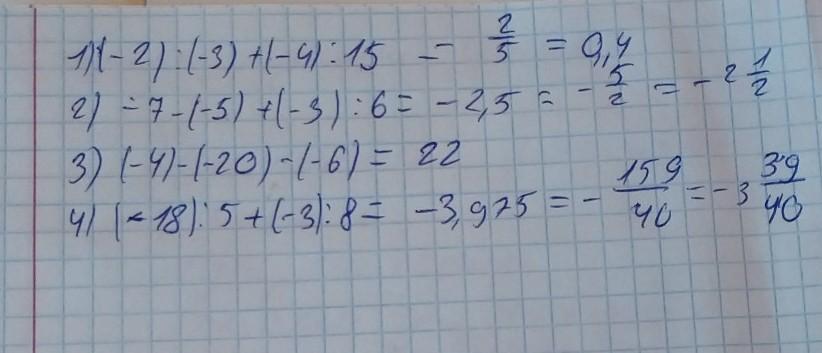 1) (-2):(-3)+(-4):15 = 2/5 = 0,4
2) -7-(-5)+(-3):6= -2,5 = -5/2 = -2 1/2
3) (-4)-(-20)-(-6)= 22
4) (-18):5+(-3):8= -3,975 = -159/40 = -3 39/40